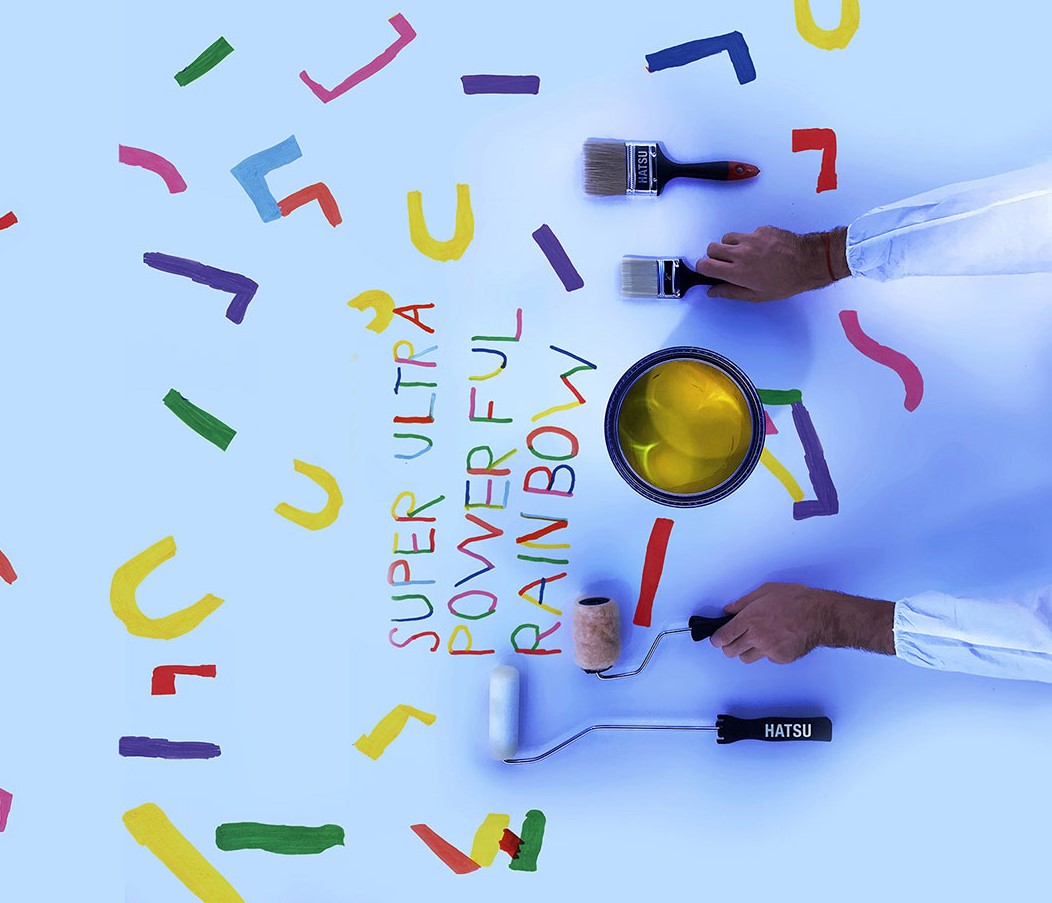 SUPER ULTRA
POWERFUL
RAINBOW
HATSU
HATSU